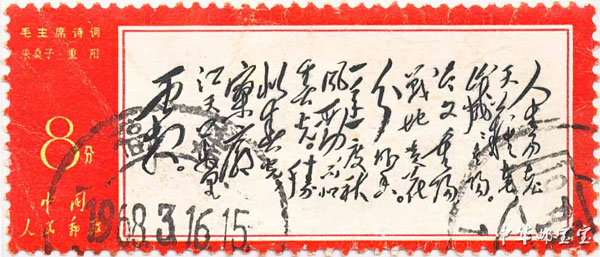 毛主席诗词
采桑子·重阳
8分
中国
人民邮政
人生易老
天难老
岁岁重阳
今又重阳
战地黄花
分外香
一年一度秋
风劲不似
春光胜
似春光
寥廓
江天万里
霜
1968.3.16.15
中华邮宝宝